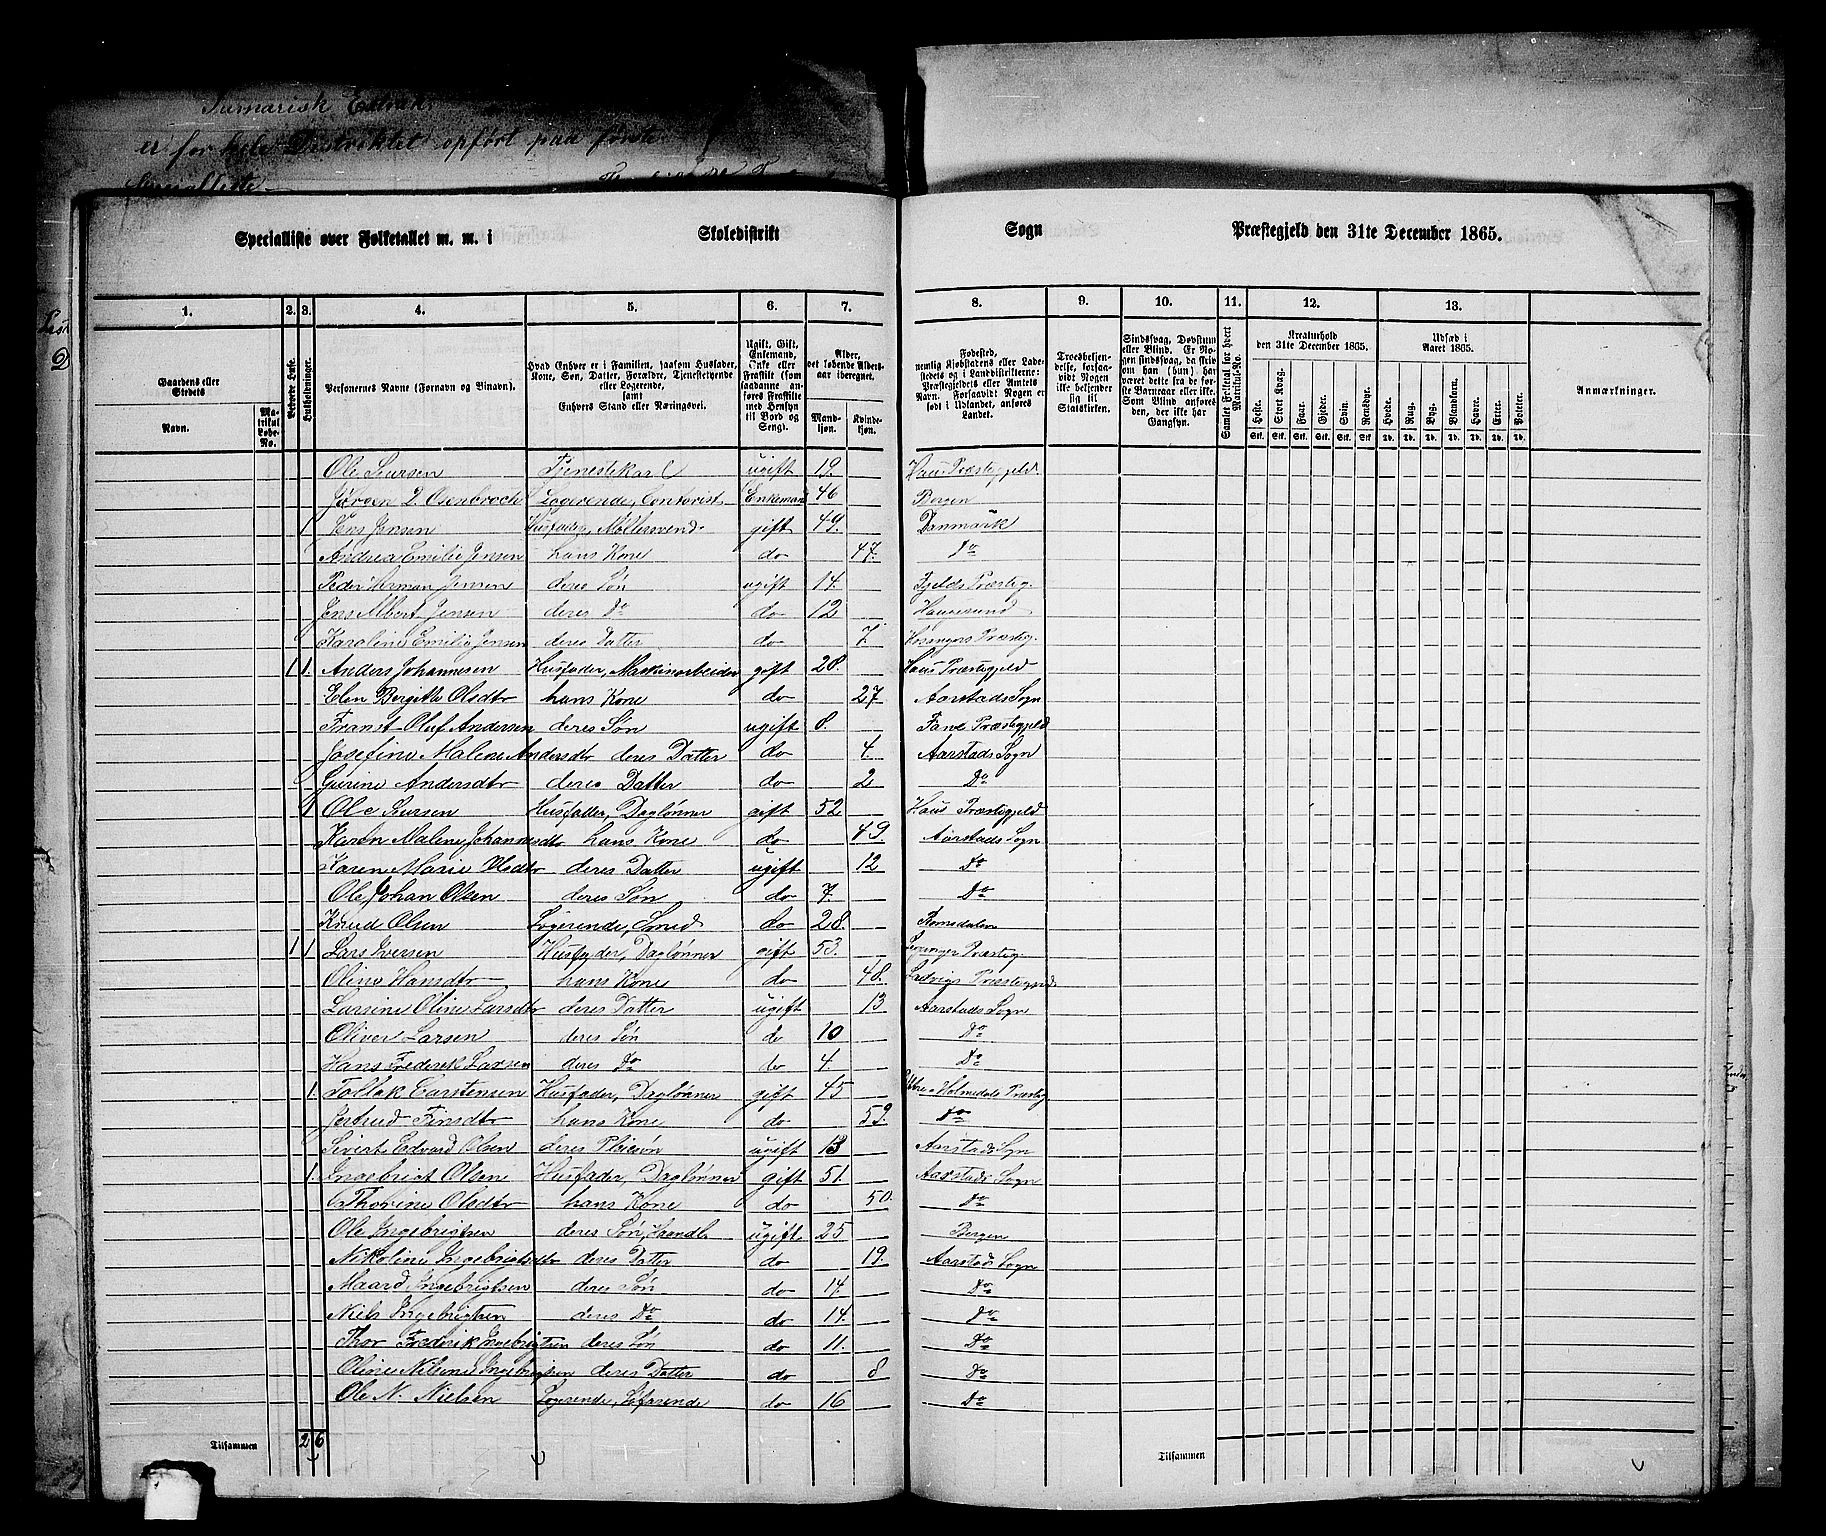 Sumarisk Extrakt
er for hele Distriktet opført paa første
Specialliste
Specialliste over Folketallet m. m. i Skoledistrikt Sogn Præstegjeld den 31te December 1865.
1. 2. 3. 4. 5. 6. 7. 8. 9. 10. 11. 12. 13.
Gaardens eller Stedets Navn. Matrikul Løbe-No. Beboede Huse. Husholdninger. Personernes Navne (Fornavn og Binavn). Hvad Enhver er i Familien, saasom Husfader, Kone, Søn, Datter, Forældre, Tjenestetyende eller Logerende, samt Enhvers Stand eller Næringsvei. Ugift, Gift, Enkemand, Enke eller Fraskilt (som saadanne anføres Fraskilte med Hensyn til Bord og Seng). Alder, det løbende Aldersaar iberegnet. Mandkjøn. Kvindekjøn. Fødested, nemlig Kjøbstadens eller Ladestedets og i Landdistrikterne: Præstegjeldets eller Amtets Navn. Forsaavidt Nogen er født i Udlandet, anføres Landet. Troesbekjendelse, forsaavidt Nogen ikke bekjender sig til Statskirken. Sindssvag, Døvstum eller Blind. Er Nogen sindssvag, da skrives om han (hun) har været dette fra før Barneaar eller ikke. Som Blind anføres den, der ikke har Gangsyn. Samlet Freltal for hvert Matrikul-No. Kreaturhold den 31te December 1865. Heste. Stort Kvæg. Faar. Gjeder. Svin. Rensdyr. Udsæd i Aaret 1865. Hvede. Rug. Byg. Blandkorn. Havre. Erter. Poteter. Anmærkninger.
Stk. Stk. Stk. Stk. Stk. Stk. Td. Td. Td. Td. Td. Td. Td.
Ole Iversen Tjenestekarl ugift 19. Haus Præstegjeld
Jørgen D. Osenbroch Logerende, Contorist Enkemand 46 Bergen
1 Jens Jensen Husfader, Møllersvend gift 49. Danmark
Andrea Emilie Jensen hans Kone do 47. Do
Peder Herman Jensen deres Søn ugift 14. Præsteg.
Jens Albert Jensen deres Do do 12 Haugesund
Karoline Emilie Jensen deres Datter do 7. Hosangers Præsteg.
1 1. Anders Johannesen Husfader, Maskinarbeider gift 28. Haus Præstegjeld
Elen Bergitte Olsdtr hans Kone do 27 Aarstads Sogn
Franst Oluf Andersen deres Søn ugift 8. Fane Præstegjeld
Josefine Malene Andersdtr deres Datter do 4. Aarstads Sogn
Gurine Andersdtr deres Datter do 2 Do
1 Ole Iversen Husfader, Daglønner gift 52 Haus Præstegjeld
Karen Malene Johannesdtr hans Kone do 49. Aarstads Sogn
Karen Marie Olsdtr deres Datter ugift 12 Do
Ole Johan Olsen deres Søn do 7. Do
Knud Olsen Logerende, Smed do 28. Romsdalen
1 1 Lars Iversen Husfader, Daglønner gift 53. Præsteg.
Oline Hansdtr hans Kone do 48. Ladvigs Præstegjeld
Larsine Oline Larsdtr deres Datter ugift 13 Aarstads Sogn
Oliver Larsen deres Søn do 10 Do
Hans Frederik Larsen deres Do do 4. Do
1. Tollak Carstensen Husfader, Daglønner gift 45 Holmedals Præsteg
Jertrud Finsdtr hans Kone do 59. Do
Sivert Edvard Olsen deres Pleiesøn ugift 13 Aarstads Sogn
1. Ingebrigt Olsen Husfader, Daglønner gift 51. Aarstads Sogn
Thorine Olsdtr hans Kone do 50. Do
Ole Ingebrigtsen deres Søn, Haandl. ugift 25 Bergen
Nikoline Ingebrigtsdtr deres Datter do 19. Aarstads Sogn
Maard Ingebrigtsen deres Søn do 17. Do
Niels Ingebrigtsen deres Do do 14. Do
Thor Frederik Ingebrigtsen deres Søn do 11. Do
Oline Ingebrigtsen deres Datter do 8 Do
Ole N. Nielsen Logerende, Søfarende do 16 Do
Tilsammen 2 6 Tilsammen